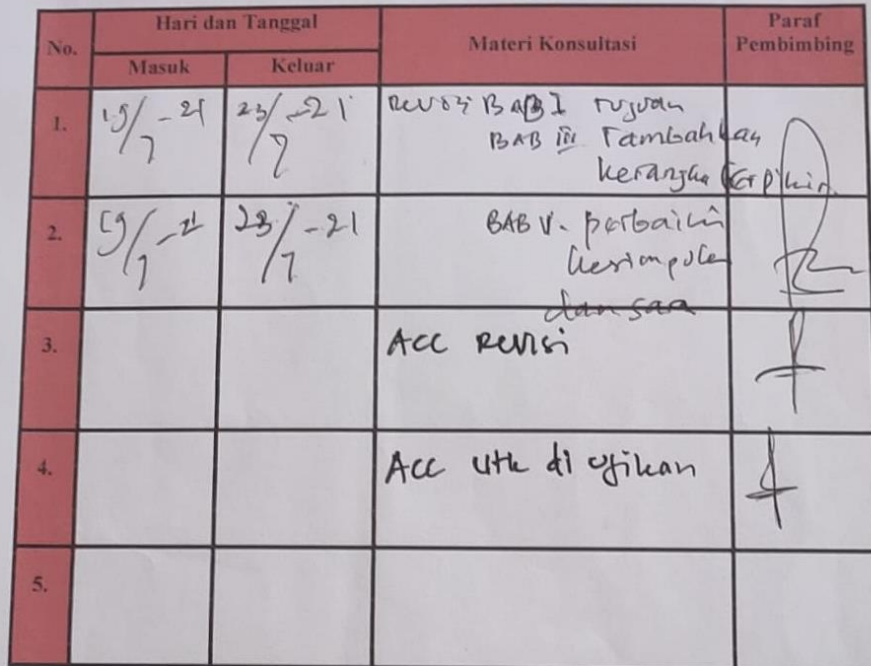 No. Hari dan Tanggal Materi Konsultasi Paraf Pembimbing
Masuk Keluar
1. 19/7-21 23/7-21 Revisi BAB I Tujuan
BAB III Tambahkan
kerangka berpikir.
2. 19/7-21 23/7-21 BAB V. perbaiki
kesimpulan
dan saran
3. ACC Revisi
4. ACC utk di ujikan
5.